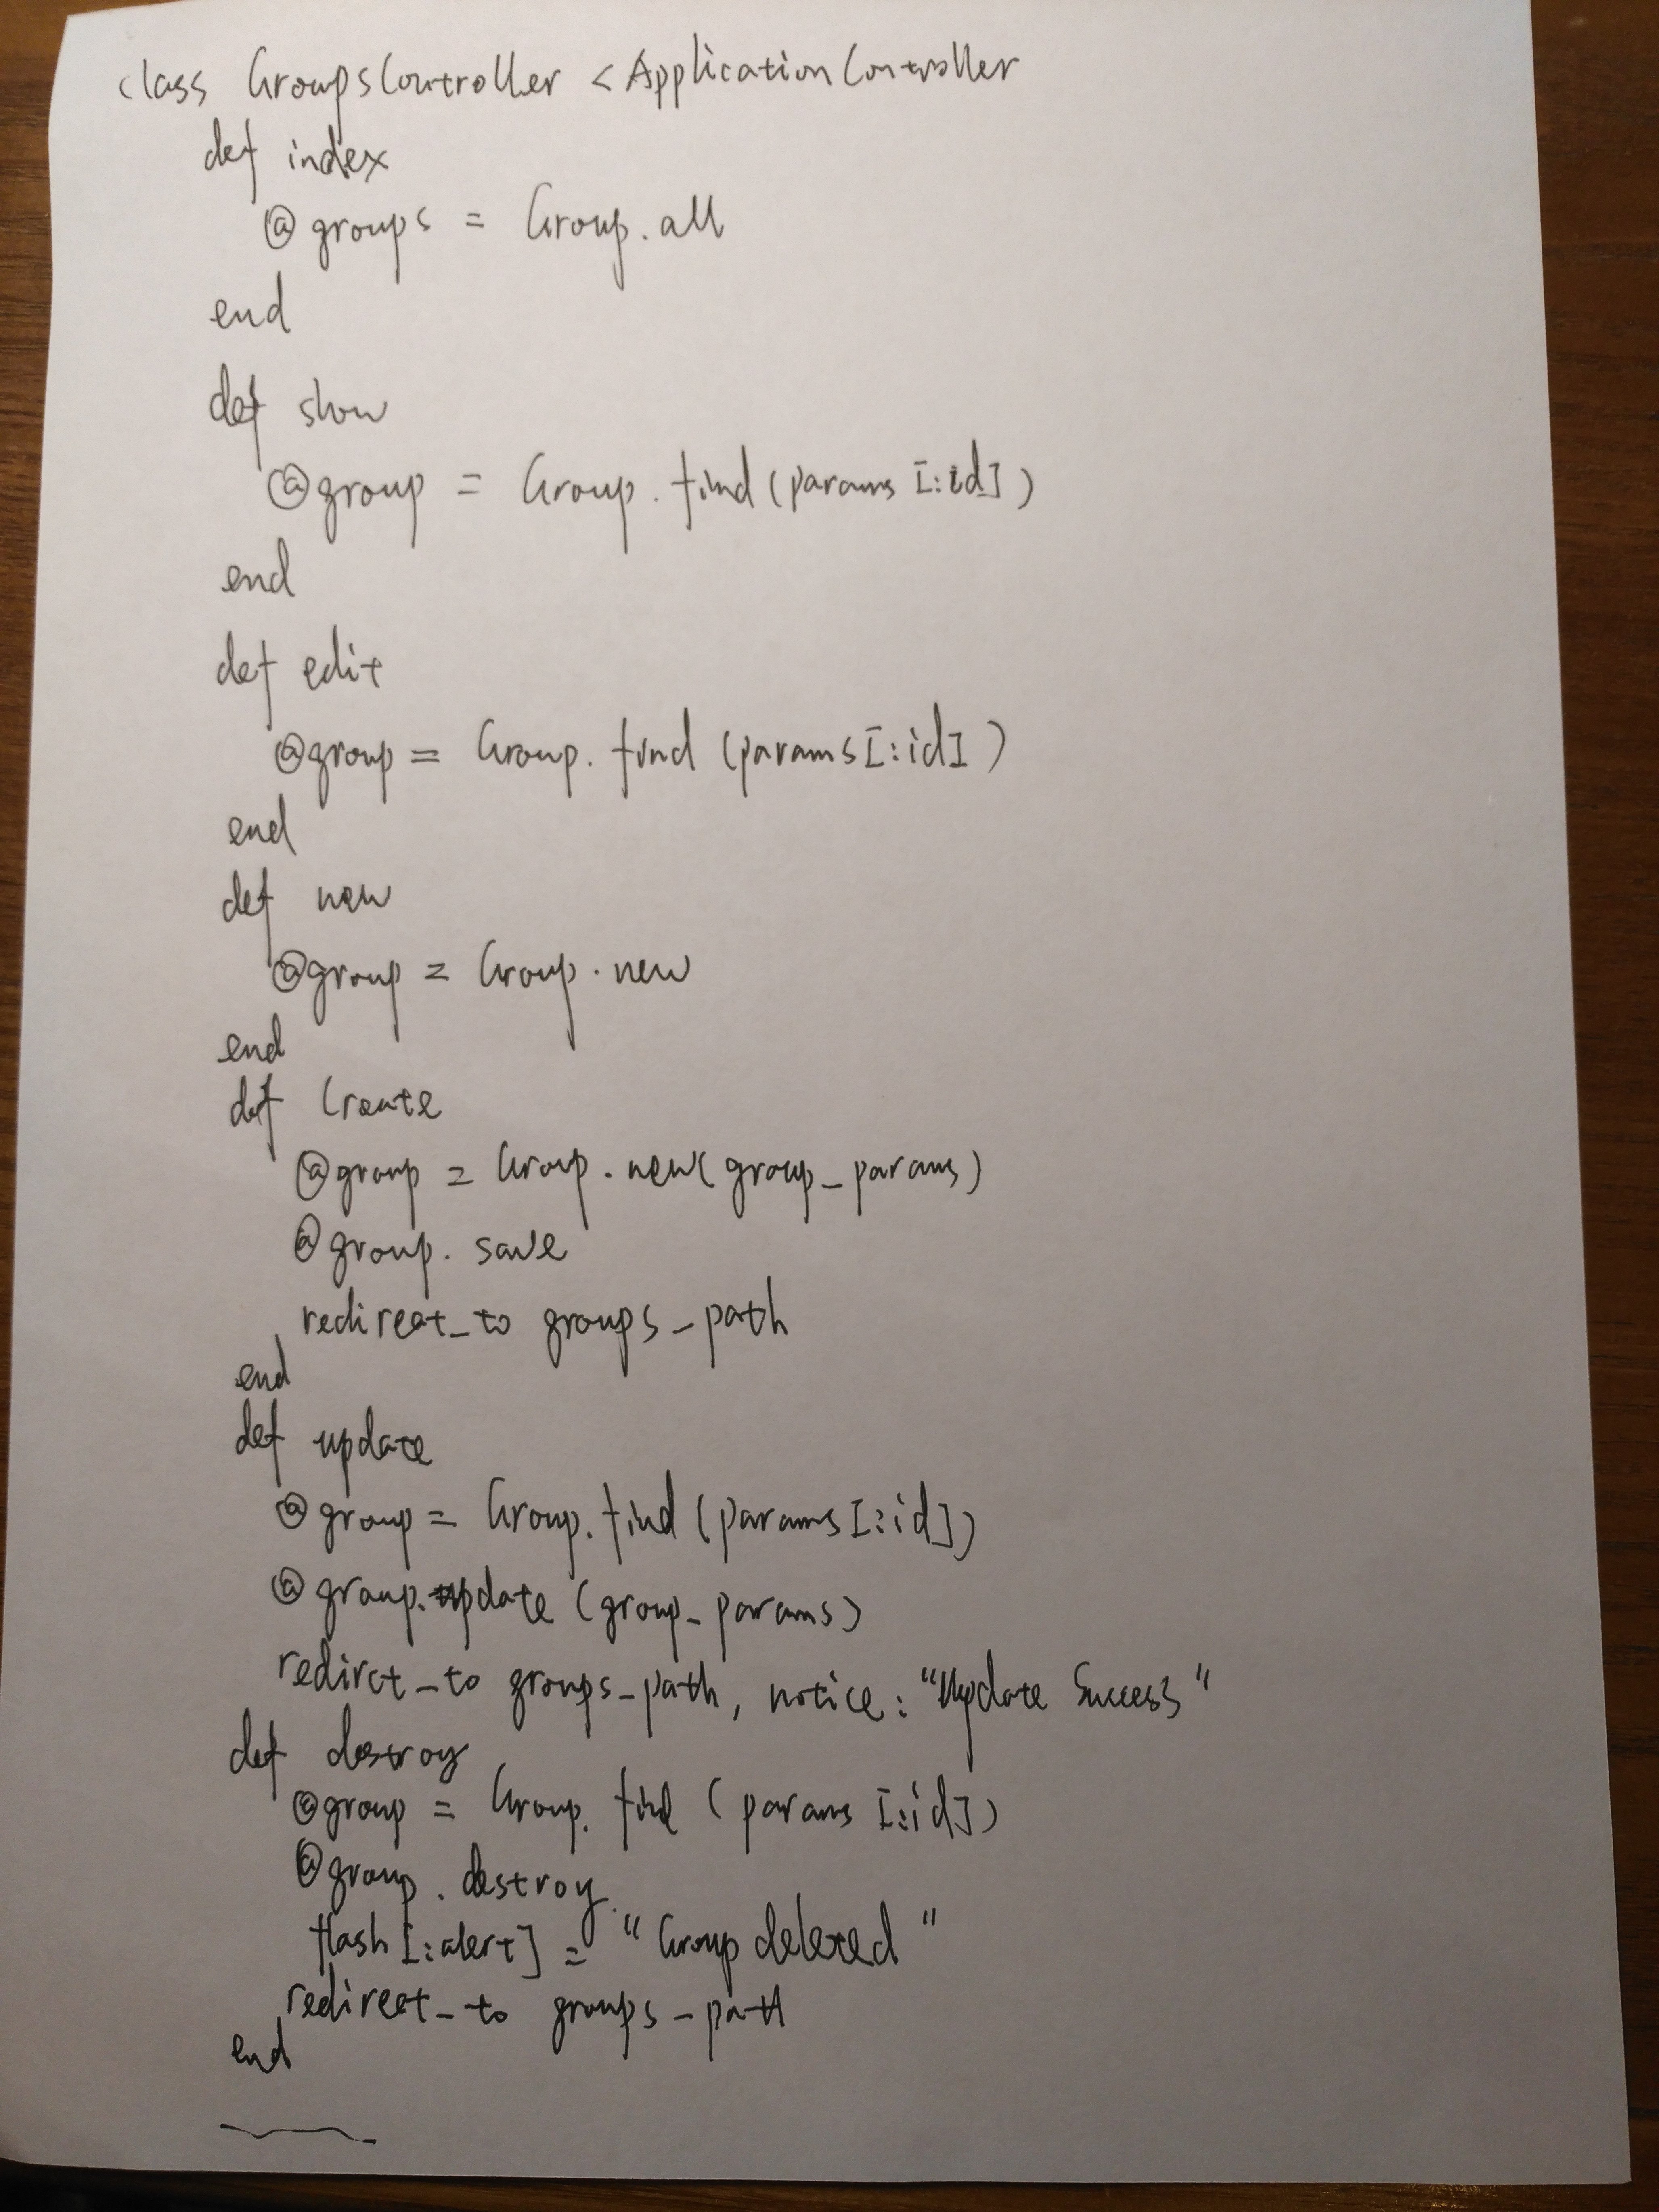 class GroupsController < ApplicationController
def index
@groups = Group.all
end
def show
@group = Group.find(params[:id])
end
def edit
@group = Group.find (params[:id])
end
def new
@group = Group.new
end
def create
@group = Group.new(group_params)
@group.save
redirect_to groups_path
end
def update
@group = Group.find (params[:id])
@group.update (group_params)
redirct_to groups_path, notice: "Update Success"
def destroy
@group = Group.find (params [:id])
@group.destroy
flash[:alert] = "Group deleted"
redirect_to groups_path
end